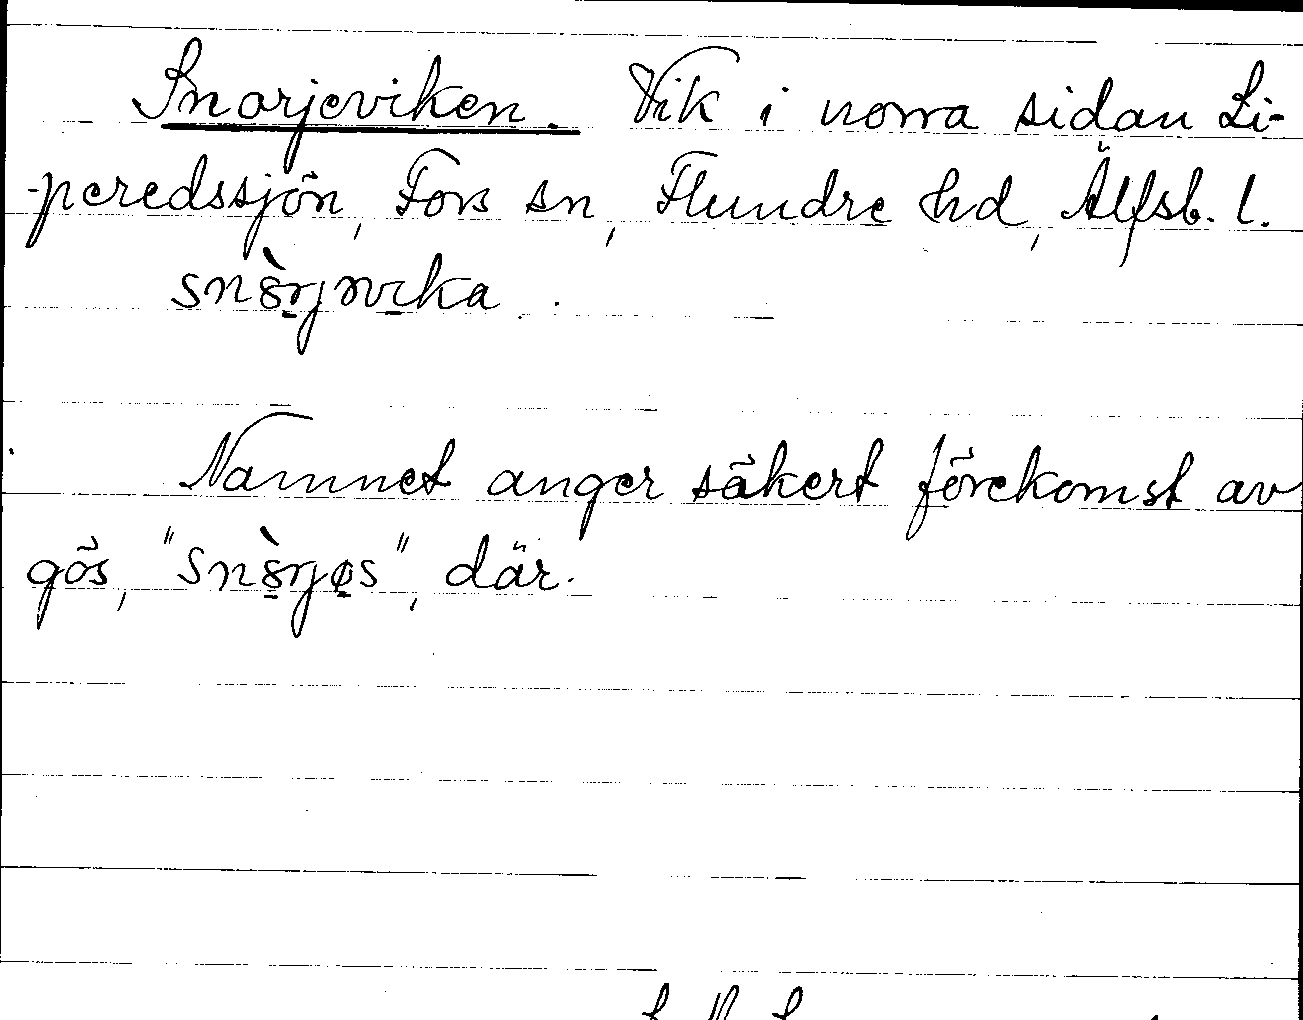 Snarjeviken. Vik i norra sidan Li-
peredssjön, Fors sn, Flundre hd, Älfsb. l.
Namnet anger säkert förekomst av
gös, där.